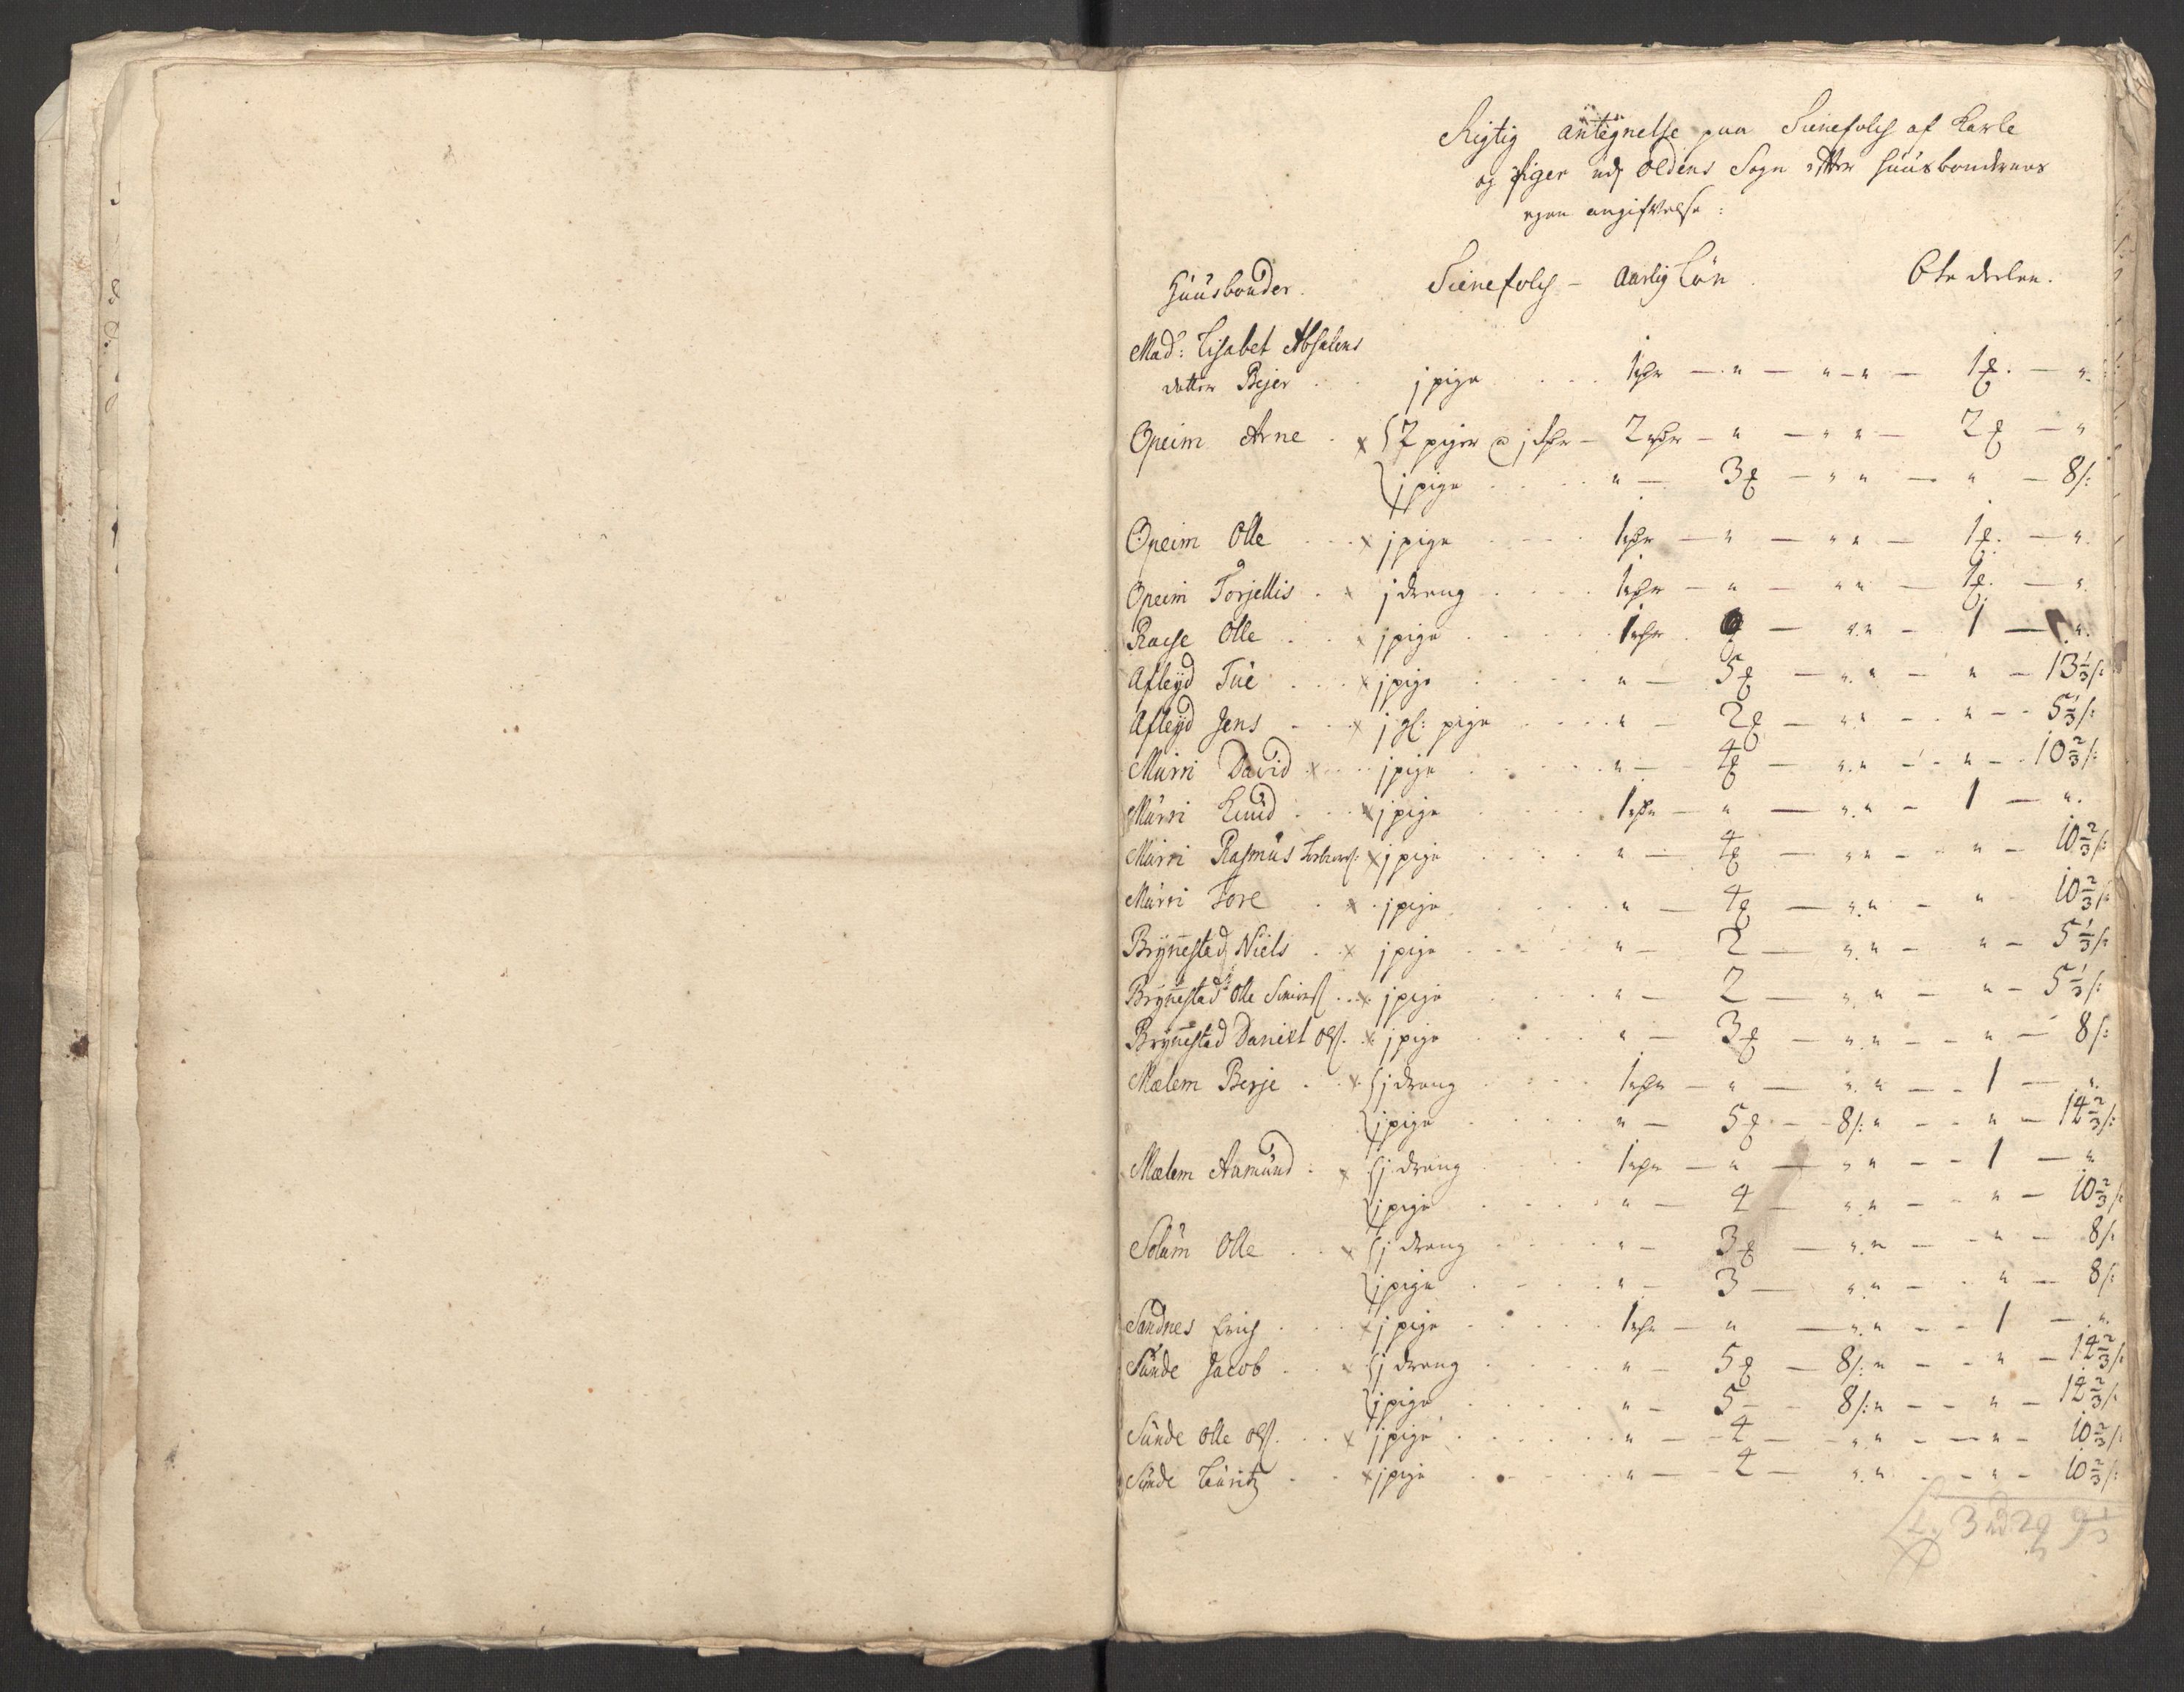 Rigtig antegnelse paa Tienefolch af Karle
og piger udj Oldens Sogn efter Huusbondernes
egen angifvelse:
Huusbonder. Tienefolch – Aarlig Løn. 6te deelen.
Mad: Lisabet Absalens
datter Bejer . . . j pige . . . 1 rdr – " – " – " – 1 ₰. – ".
Opeim Arne . x 2 piger a j rdr – 2 rdr – " – " " – 2 ₰ – "
j pige . . . . " – 3 ₰ – " " – " – 8 /:
Opeim Olle . . . x j pige . . . . 1 rdr – " – " " – 1 ₰. – ".
Opeim Torjellis . x j dreng . . . . 1 rdr – " – " " – 1 ₰. – ".
Olle . . x j pige . . . . 1 rdr . – ". " – 1 – ".
Afleyd Tue . . . x j pige . . . . " – 5 ₰ – ". " – " – 13 1/3 /:
Afleyd Jens – . . x j gl: pige . . . . " – 2 ₰ – ". " – . " – – 5 1/3 /:
Murri David . x . . j pige . . . . " – – 4 ₰ – ". " – . " – . 10 2/3 /:
Murri Knud . . . x j pige . . . . 1 rdr – " – ". " – 1 – ".
Murri Rasmus x j pige . . . . " – 4 ₰ – " " – . " – 10 2/3 /:
Murri Tore . x . j pige . . . . " – 4 ₰ – ". " – " 10 2/3 /:
Brynestad Niels . . x j pige . . . . " – 2 – ". " – " – 5 1/3 /:
Brynestad Olle Simens . . x j pige . . . . " – 2 – ". " – " – 5 1/3 /:
Brynestad Daniel Ols. . x j pige . . . . " – 3 ₰ – ". " – – " – 8 /:
Mælem Berje . . x. j dreng . . . . 1 rdr – " – ". " – – 1 – ".
j pige . . . . " – 5 ₰ – – 8 /: " – – " – 14 2/3 /:
Mælem Aamund . x j dreng . . . . 1 rdr – " – " " – – 1 – "
j pige . . . . " – 4 – ". " – – " – 10 2/3 /:
Solum Olle . . x j dreng . . . . " – 3 ₰ – ". " – – " – 8 /:
j pige . . . . " – 3 – ". " – . " – 8 /:
Sandnes Erich . . . x j pige . . . . 1 rdr – " – ". " – – 1 – ".
Sunde Jacob . . x j dreng . . . . " – 5 ₰ – 8 /: " – – " – 14 2/3 /:
j pige . . . . " – 5 – – 8 /: " – – " – 14 2/3 /:
Sunde Olle Ols. . . x j pige . . . . " – 4 – – ". " – – " – 10 2/3 /:
Sunde Lauritz . . x j pige . . . . " – – 4 – ". " – – " – 10 2/3 /:
3 rd 2 ₰ 9 1/3